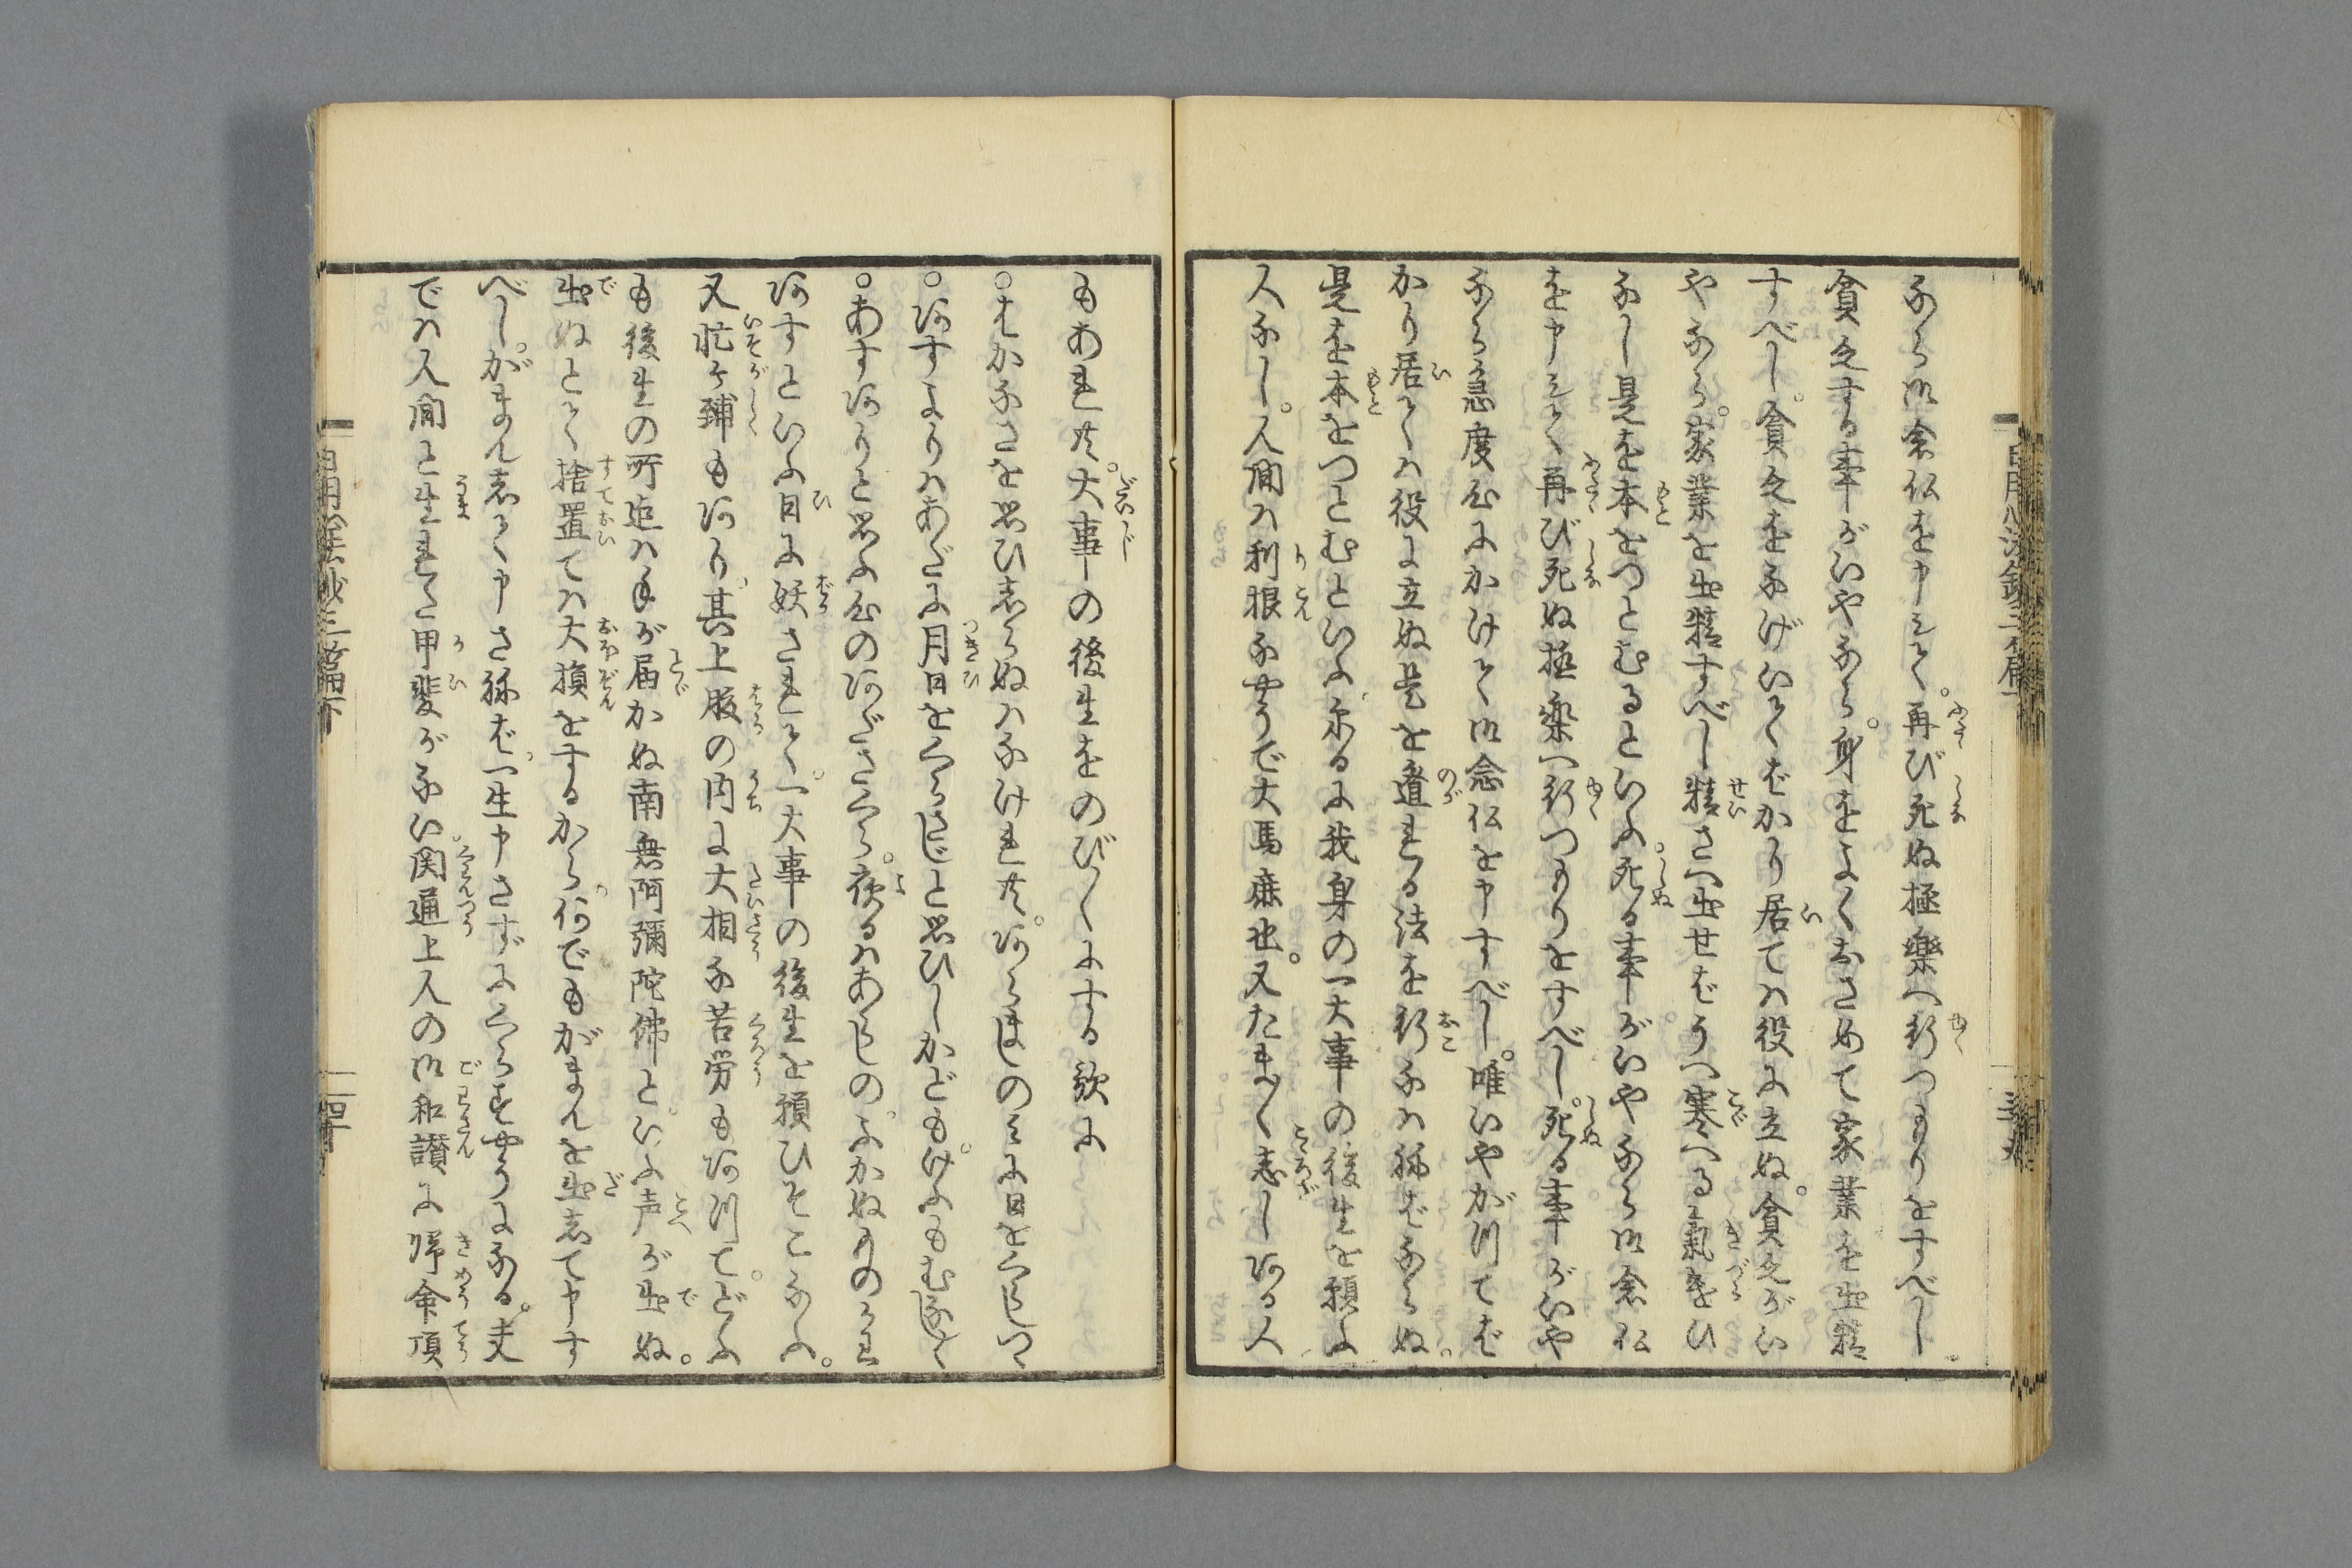 なら御念仏を申して。再び死ぬ極樂へ行つもりをすべし
貧乏する事がいやなら。身をよくおさめて家業を出精
すべし。貧乏をなげいてばかり居ては役に立ぬ。貧乏がい
やなら。家業を出精すべし精さへ出せばうへ寒へる氣遣ひ
なし是を本をつとむるといふ。死る事がいやなら御念仏
を申して再び死ぬ極樂へ行つもりをすべし。死る事がいや
なら急度心にかけて御念仏を申すべし。唯いやがつてば
かり居ては役に立ぬ是を遁れる法を行なはねばならぬ。
是を本をつとむといふ。尓るに我身の一大事の後生を願ふ
人なし。人間は利根なやうで大馬鹿也。又たまく志しある人
もあれ共。大事の後生をのびくにする故に
○はかなさを思ひ志らぬはなけれ共。あらましのみに日をくらしつゝ
○あすよりはあだに月日をくらさじと思ひしかども。けふもむなしく
○あすありと思ふ心のあださくら。夜るはあらしの。ふかぬものかは
あすといふ日に妖されて。一大事の後生を願ひそこなふ。
又忙ケ鋪もあり。其上腹の内に大相な苦労もあつて。どふ
も後生の所迄は手が届かぬ南無阿彌陀佛と。いふ声が出ぬ。
出ぬとて捨置ては大損をするから。何でもがまんを出志て申す
べし。がまん志て申さねば。一生申さずにくらすやうになる。夫
では人間と生れた甲斐がない。関通上人の御和讃に帰命頂